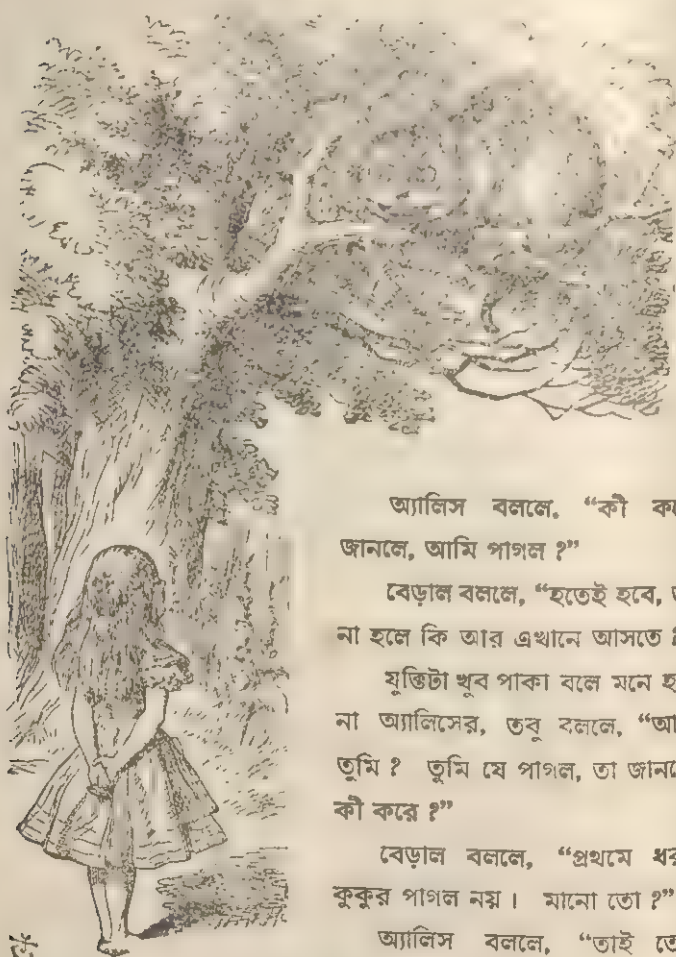 অ্যালিস বললে, “কী
জানলে, আমি পাগল ?”
বেড়াল বললে, “হতেই হবে,
না হলে কি আর এখানে আসতে ?
যুক্তিটা খুব পাকা বলে মনে
না অ্যালিসের, তবু বললে,
তুমি ? তুমি যে পাগল, তা
কী করে ?”
বেড়াল বললে, “প্রথমে
কুকুর পাগল নয়। মানো তো ?”
অ্যালিস বললে, “তাই